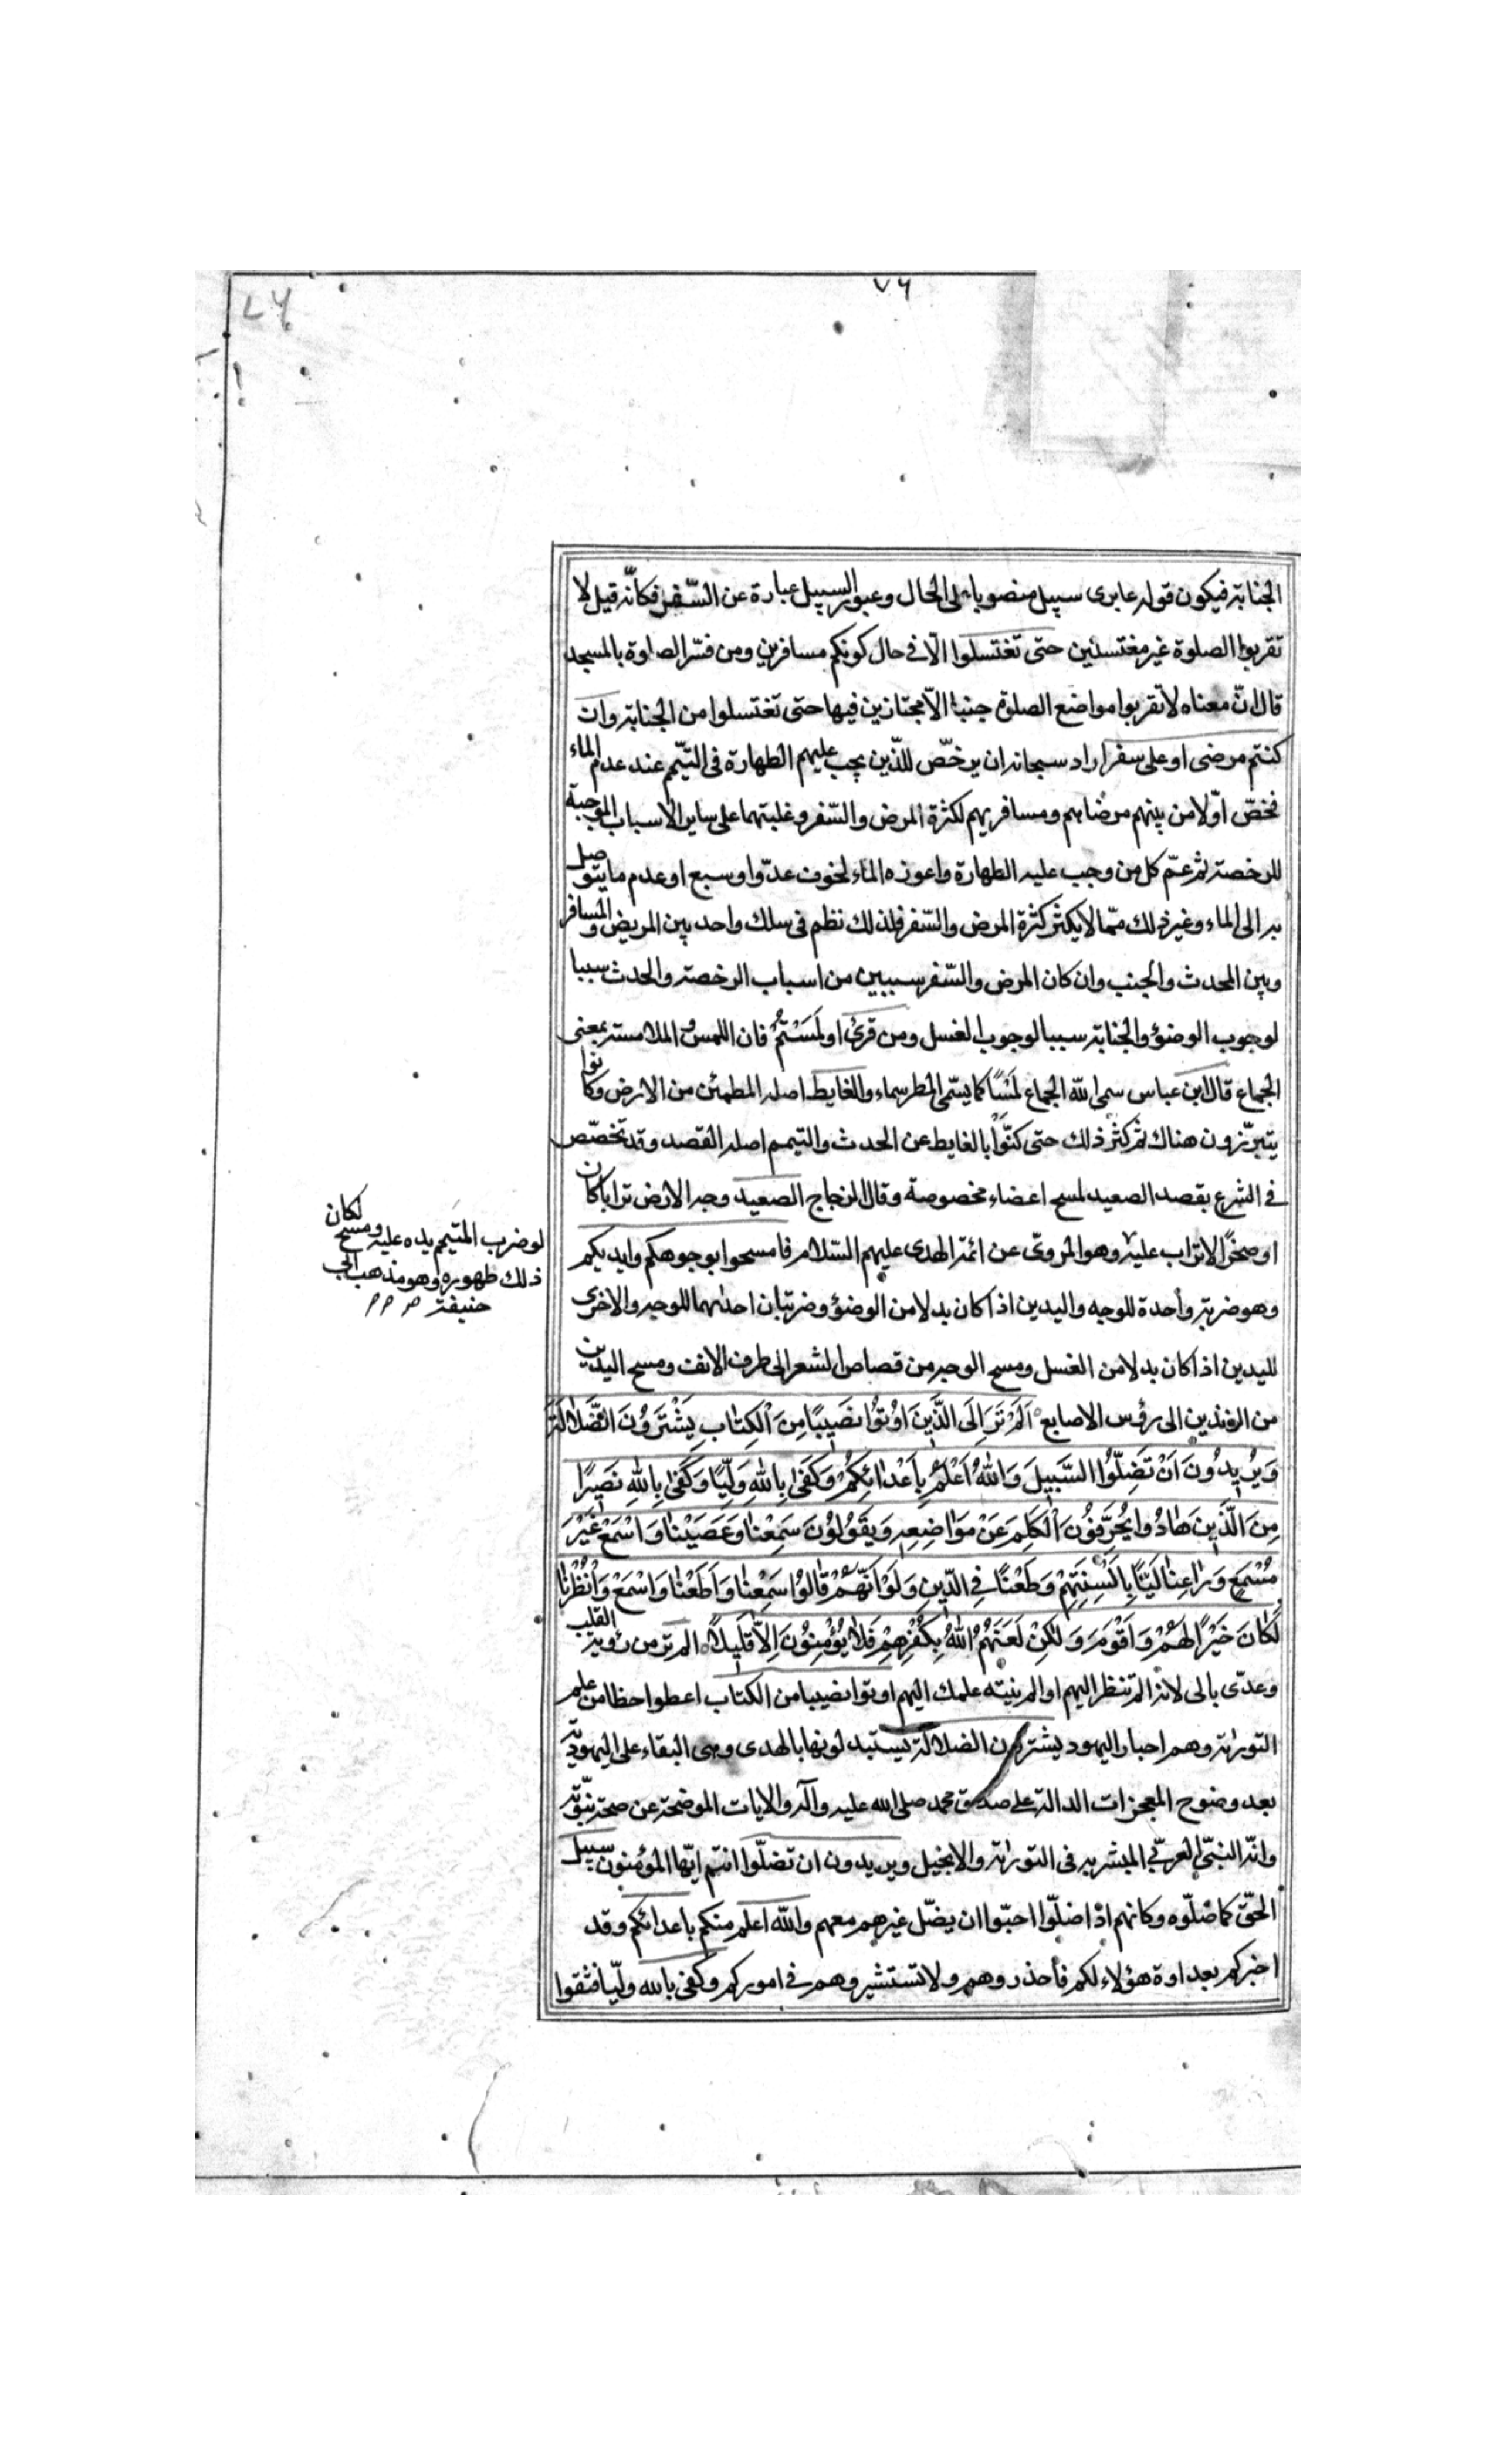 ٧٦
٧٦
الجنابة فيكون قوله عابرى سبيل منصوبا على الحال وعبور السبيل عبارة عن السّفر فكأنّه قيل لا
تقربوا الصلوة غير مغتسلين حتى تغتسلوا الّا فى حال كونكم مسافرين ومن فسّر الصلوة بالمسجد
قال انّ معناه لا تقربوا مواضع الصلوة جنبا الاّ مجتازين فيها حتى تغتسلوا من الجنابة وان
كنتم مرضى او على سفر اراد سبحانه ان يرخّص للّذين يجب عليهم الطهارة فى التيّمم عند عدم الماء
فخصّ اوّلا من بينهم مرضاهم ومسافريهم لكثرة المرض والسّفر وغلبتهما على ساير الاسباب الموجبة
للرخصة ثم عمّ كل من وجب عليه الطهارة واعوزه الماء لخوف عدّو او سبع او عدم ما يتوصل
به الى الماء وغير ذلك ممّا لا يكثر كثرة المرض والسّفر فلذلك نظم فى سلك واحد بين المريض والمسافر
وبين المحدث والجنب وان كان المرض والسّفر سببين من اسباب الرخصة والحدث سببا
لوجوب الوضؤ والجنابة سببا لوجوب الغسل ومن قرئ او لَمَسْتُمُ فان اللمس و الملامسة بمعنى
الجماع قال ابن عباس سمى اللّه الجماع لمَسًْا كما يسمّى المطر سماء والغايط اصله المطمئن من الارض وكانوا
يتبرّزون هناك ثم كثر ذلك حتى كنّوا بالغايط عن الحدث والتيمم اصله القصد وقد تخصّص
فى الشرع بقصد الصعيد لمسح اعضاء مخصوصة وقال الزجاج الصعيد وجه الارض ترابا كان
او صخرًا لا تراب عليه وهو المروىّ عن ائمة الهدى عليهم السّلام فامسحوا بوجوهكم وايديكم
لو ضرب المتيمم يده عليه ومسح لكان
ذلك طهوره وهو مذهب ابى
حنيفة
وهو ضربة واحدة للوجه واليدين اذا كان بدلا من الوضؤ وضربتان احدٰىهما للوجه والاخرى
لليدين اذا كان بدلا من الغسل ومسح الوجه من قصاص الشعر الى طرف الانف ومسح اليدين
من الزندين الى رؤس الاصابع اَلَمْ تَرَ اِلَى الَّذَينَ اوُتوُا نصَيبًا مِنَ الْكِتٰابِ يَشْتَروُنَ الضَّلٰالَةَ
وَيُريدوُنَ اَنْ تَضِلّوُا السَّبيلَ وَاللهُ اَعْلَمُ بِاَعْدٰائِكُمْ وَكَفىٰ بِاللهِ وَلِيًّا وَكَفىٰ بِاللهِ نَصيرًا
مِنَ الَّذَينَ هٰادوُا يُحَرِّفوُنَ الْكَلِمَ عَنْ مَوٰاضِعِهِ وَيَقوُلوُنَ سَمِعْنٰا وَعَصَيْنٰا وَاسْمَعْ غَيْرَ
مُسْمَعٍ وَرٰاعِنٰا لَيًّا بِاَلْسِنَتِهِمْ وَطَعْنًا فِى الدّينِ وَلَوْ اَنَّهُمْ قٰالوُا سَمِعْنٰا وَاَطَعْنٰا وَاسْمَعْ وَانْظُرْنٰا
لَكٰانَ خَيْرًا لَهُمْ وَاَقْوَمَ وَلٰكِنْ لَعَنَهُمُ اللهُ بِكُفْرِهِمْ فَلاٰ يُؤْمِنوُنَ اِلاّٰ قَليلاً الم تر من رؤية القلب
وعدّى بالى لانه الم تنظر اليهم او الم ينته علمك اليهم اوتوا نصيبا من الكتاب اعطوا حظا من علم
التورٰية وهم احبار اليهود يشترون الضلالة يستبدلونها بالهدى وهى البقاء على اليهوديّة
بعد وضوح المعجزات الدالة على صدق محمد صلى الله عليه وآله والايات الموضحة عن صحة نبّوته
وانّه النبىّ العربىّ المبشر به فى التورٰية والانجيل ويريدون ان تضلّوا انتم ايّها المؤمنون سبيل
الحقّ كما ضلّوه وكانهم اذا ضلّوا احبّوا ان يضلّ غيرهم معهم واللّه اعلم منكم باعدائكم وقد
اخبركم بعداوة هؤلاء لكم فاحذروهم ولا تستشيروهم فى اموركم وكفى بالله وليّا فثقوا